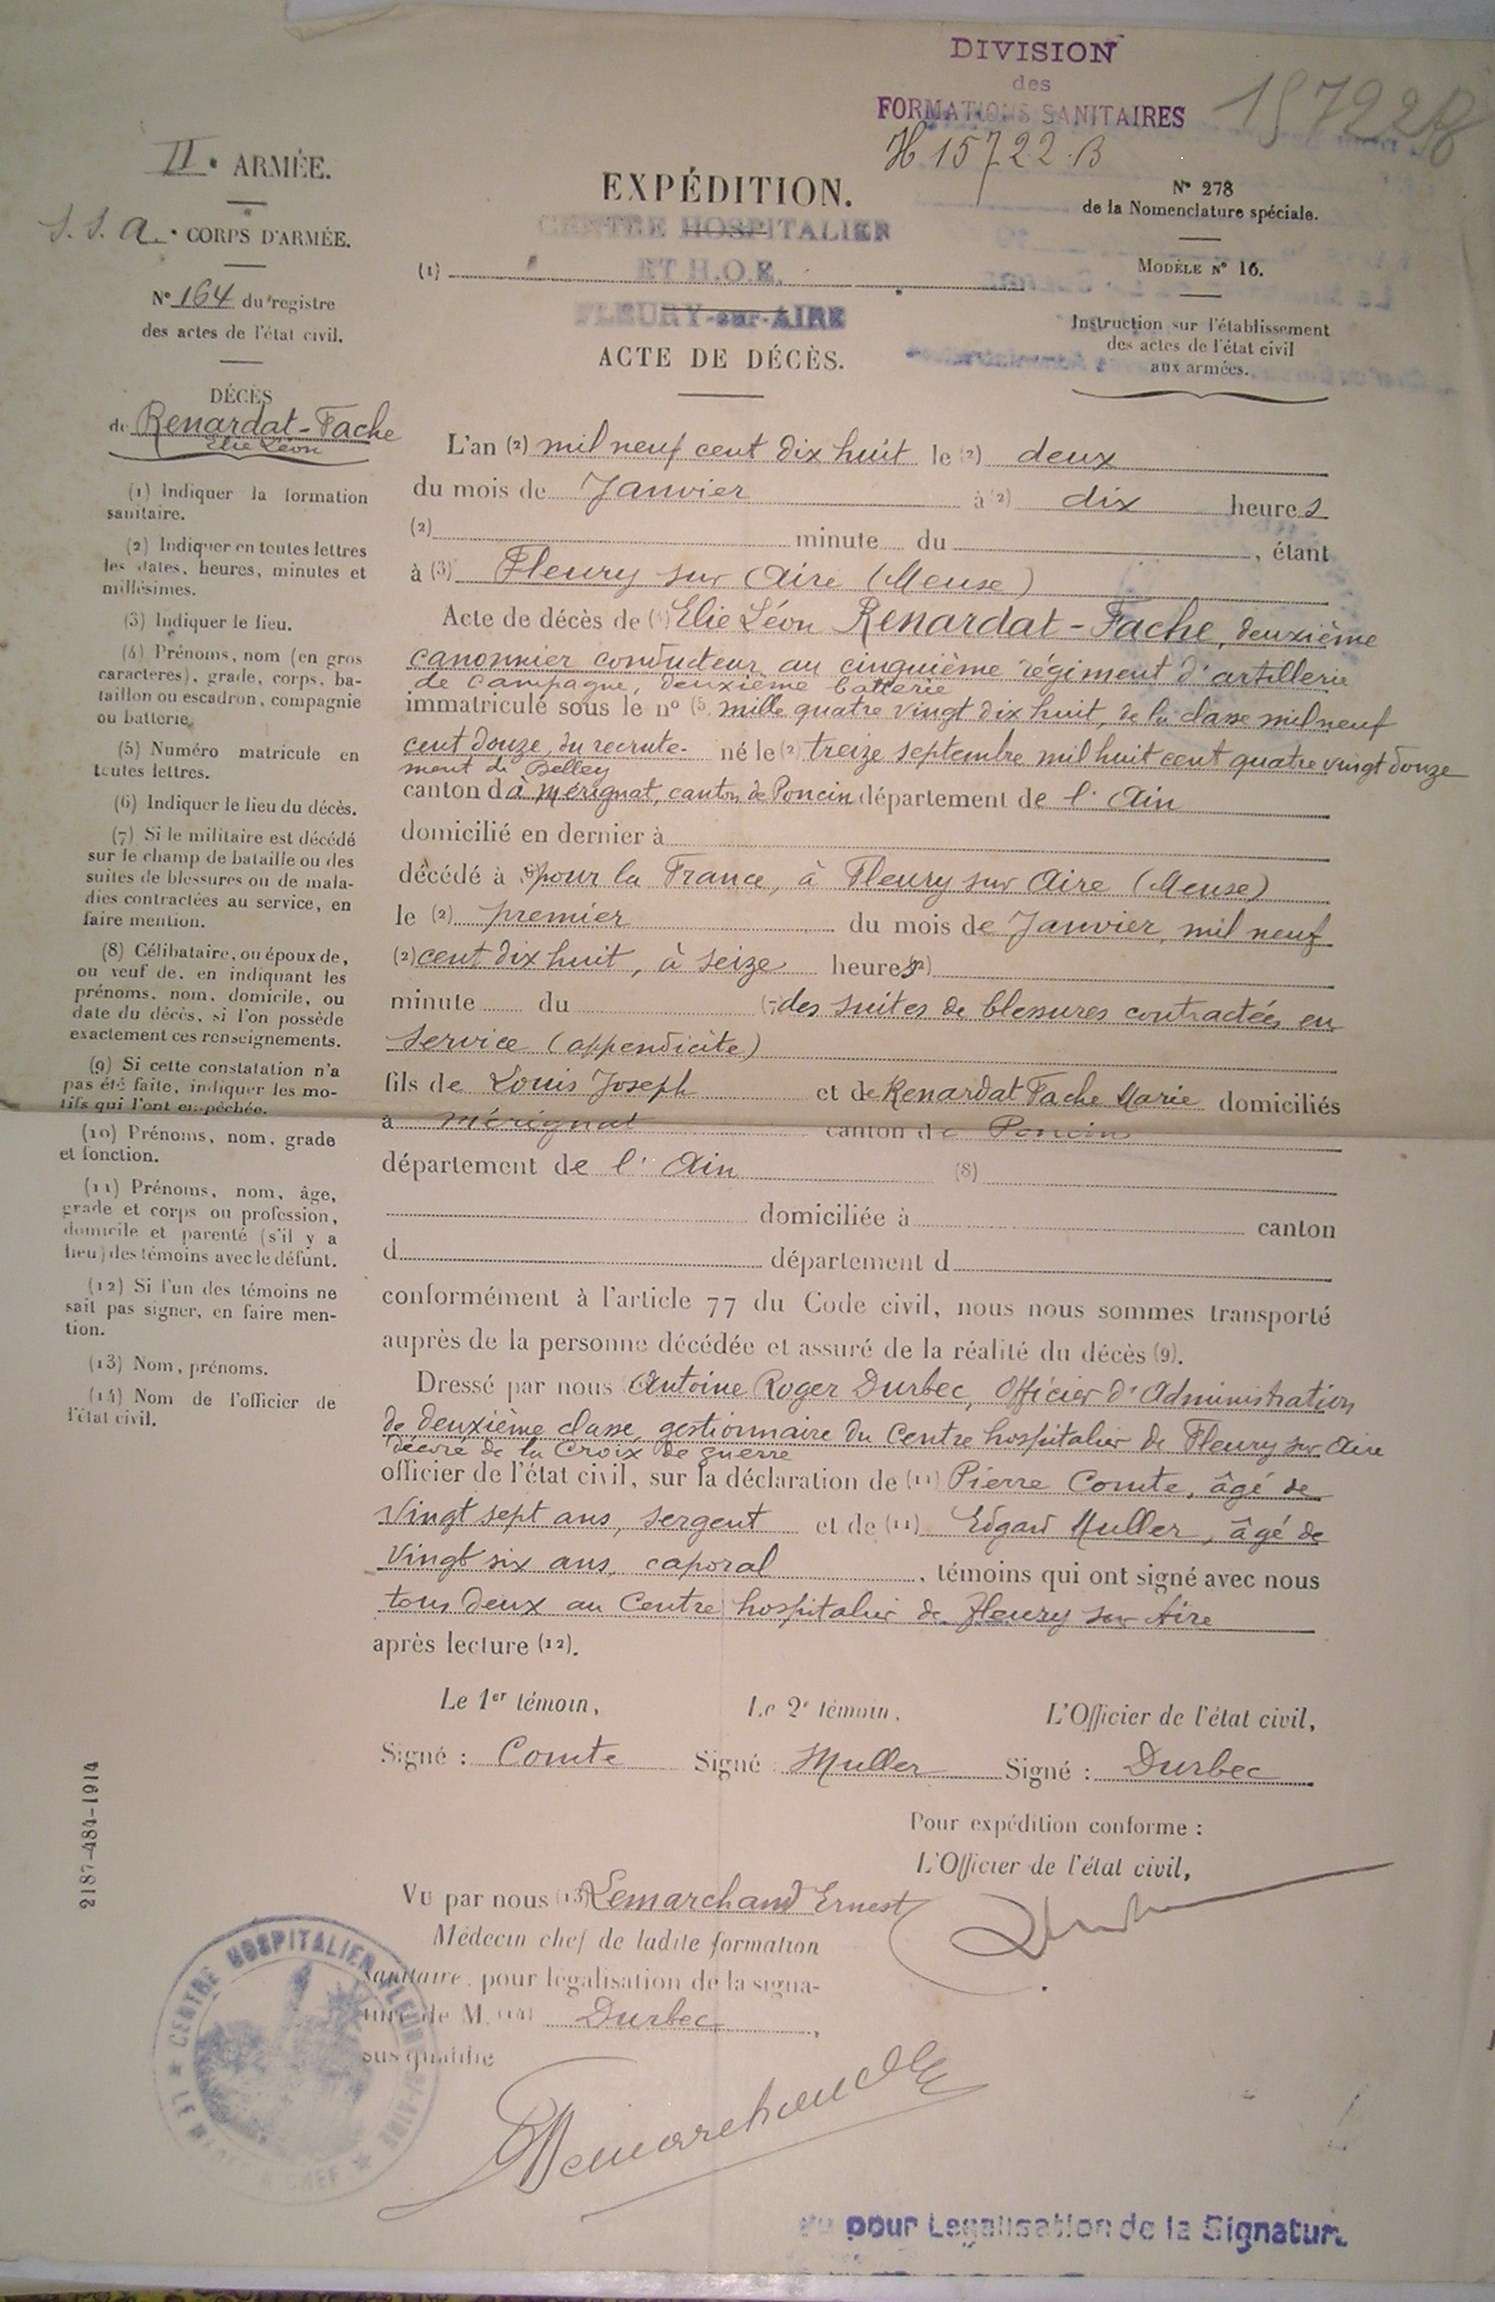 DIVISION
des
FORMATIONS SANITAIRES
15722 B
H 15722.B
II e ARMÉE.
S. S. A. CORPS D'ARMÉE.
N° 164 du registre
des actes de l'état civil.
DÉCÈS
de Renardat-Fache
Elie Léon
(1) Indiquer la formation
sanitaire.
(2) Indiquer en toutes lettres
les dates, heures, minutes et
millésimes.
(3) Indiquer le lieu.
(4) Prénoms, nom (en gros
caractères), grade, corps, ba-
taillon ou escadron, compagnie
ou batterie.
(5) Numéro matricule en
toutes lettres.
(6) Indiquer le lieu du décès.
(7) Si le militaire est décédé
sur le champ de bataille ou des
suites de blessures ou de mala-
dies contractées au service, en
faire mention.
(8) Célibataire, ou époux de,
ou veuf de, en indiquant les
prénoms, nom, domicile, ou
date du décès, si l'on possède
exactement ces renseignements.
(9) Si cette constatation n'a
pas été faite, indiquer les mo-
tifs qui l'ont empêchée.
(10) Prénoms, nom, grade
et fonction.
(11) Prénoms, nom, âge,
grade et corps ou profession,
domicile et parenté (s'il y a
lieu) des témoins avec le défunt.
(12) Si l'un des témoins ne
sait pas signer, en faire men-
tion.
(13) Nom, prénoms.
(14) Nom de l'officier de
l'état civil.
2187-484-1914
EXPÉDITION.
CENTRE HOSPITALIER
(1) ET H.O.E.
FLEURY-sur-AIRE
ACTE DE DÉCÈS.
N° 278
de la Nomenclature spéciale.
MODÈLE N° 16.
Instruction sur l'établissement
des actes de l'état civil
aux armées.
L'an (2) mil neuf cent dix huit le (2) deux
du mois de Janvier à (2) dix heures
(2) minute du , étant
à (3) Fleury sur Aire (Meuse)
Acte de décès de (4) Elie Léon Renardat-Fache, deuxième
canonnier conducteur au cinquième régiment d'artillerie
de campagne, deuxième batterie
immatriculé sous le n° (5) mille quatre vingt dix huit, de la classe mil neuf
cent douze, du recrute- né le (2) treize septembre mil huit cent quatre vingt douze
ment de Belley
canton d à Mérignat, canton de Poncin département de l'Ain
domicilié en dernier à
décédé à (6) pour la France, à Fleury sur Aire (Meuse)
le (2) premier du mois de Janvier, mil neuf
(2) cent dix huit, à seize heures (2)
minute du (7) des suites de blessures contractées en
service (appendicite)
fils de Louis Joseph et de Renardat Fache Marie domiciliés
à Mérignat canton de Poncin
département de l'Ain (8)
domiciliée à canton
d département d
conformément à l'article 77 du Code civil, nous nous sommes transporté
auprès de la personne décédée et assuré de la réalité du décès (9).
Dressé par nous Antoine Roger Durbec, Officier d'Administration
de deuxième classe, gestionnaire du Centre hospitalier de Fleury sur Aire
décoré de la Croix de guerre
officier de l'état civil, sur la déclaration de (11) Pierre Comte, âgé de
vingt sept ans, sergent et de (11) Edgard Muller, âgé de
vingt six ans, caporal , témoins qui ont signé avec nous
tous deux au Centre hospitalier de Fleury sur Aire
après lecture (12).
Le 1er témoin, Le 2e témoin, L'Officier de l'état civil,
Signé : Comte Signé : Muller Signé : Durbec
Pour expédition conforme :
L'Officier de l'état civil,
Vu par nous (13) Lemarchand Ernest
Médecin chef de ladite formation
sanitaire, pour légalisation de la signa-
ture de M. (14) Durbec,
sus qualifié
Lemarchand
CENTRE HOSPITALIER FLEURY s/-AIRE
pour Légalisation de la Signature